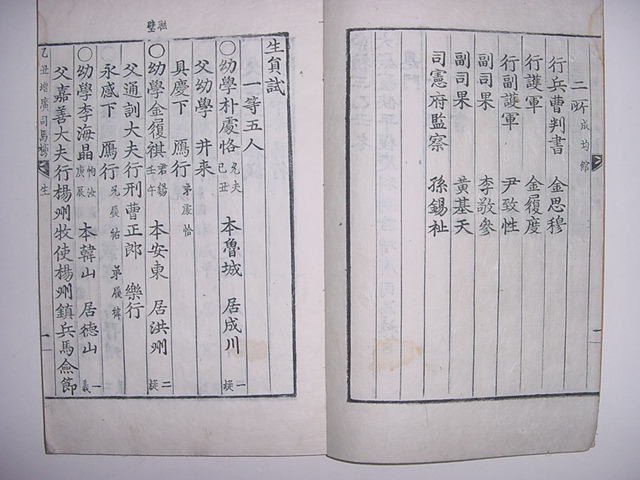 二所 成均館
行兵曹判書 金思穆
行護軍 金履度
行副護軍 尹致性
副司果 李敬參
副司果 黃基天
司憲府監察 孫錫祉
生員試
一等五人
○幼學朴處恪 己丑 本魯城 居成川 一
父幼學 井來
具慶下 鴈行 弟處恰
○幼學金履祺 君錫 壬午 本安東 居洪州 二
父通訓大夫行刑曹正郎 樂行
永感下 鴈行 兄履祜 弟履禕
○幼學李海晶 庚辰 本韓山 居德山 一 義
父嘉善大夫行楊州牧使楊州鎭兵馬僉節
乙丑增廣司馬榜 生 一